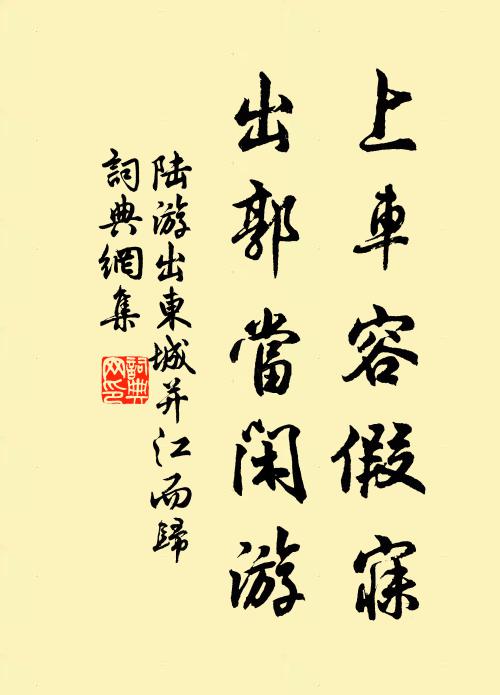 上車容假寐
出郭當閑游
陸游出東城并江而歸
詞典網集
詞典网印